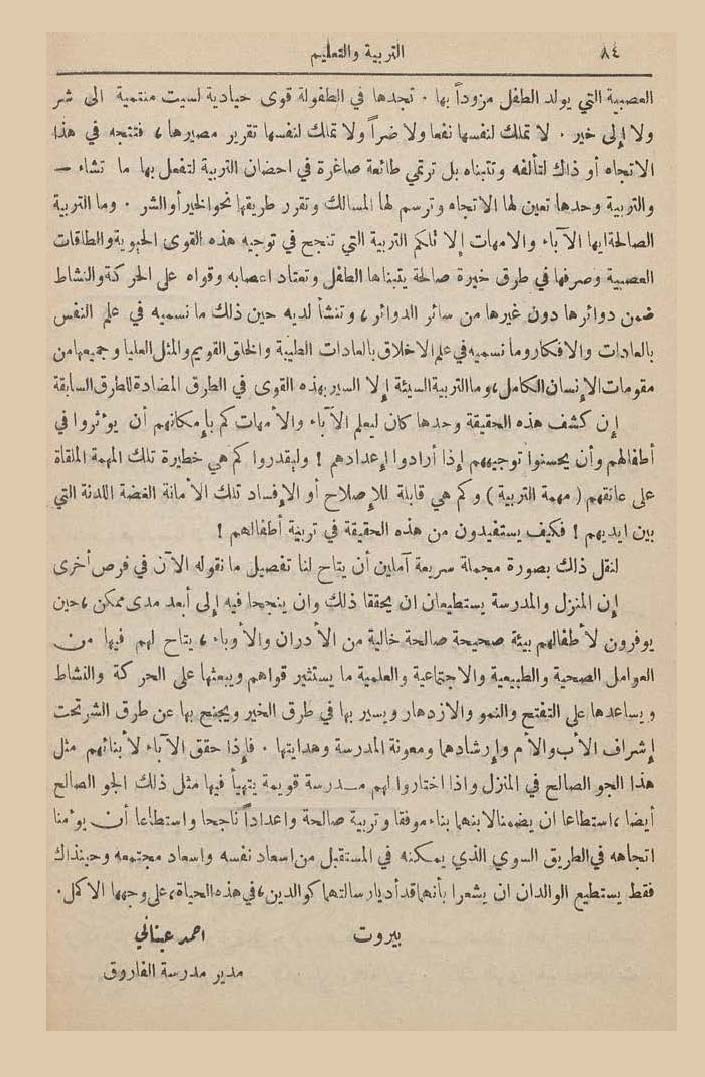 ٨٤
التربية والتعليم
العصبية التي يولد الطفل مزوداً بها . تجدها في الطفولة قوى حيادية ليست منتمية الى شر
ولا إلى خير . لا تملك لنفسها نفعا ولا ضراً ولا تملك لنفسها تقرير مصيرها ، فتتجه في هذا
الاتجاه أو ذاك لتألفه وتتبناه بل ترتمي طائعة صاغرة في احضان التربية لتفعل بها ما تشاء —
والتربية وحدها تعين لها الاتجاه وترسم لها المسالك وتقرر طريقها نحو الخير أو الشر . وما التربية
الصالحة ايها الآباء والامهات إلا تلكم التربية التي تنجح في توجيه هذه القوى الحيوية والطاقات
العصبية وصرفها في طرق خيرة صالحة يتبناها الطفل وتعتاد اعصابه وقواه على الحركة والنشاط
ضمن دوائرها دون غيرها من سائر الدوائر ، وتنشأ لديه حين ذلك ما نسميه في علم النفس
بالعادات والافكار وما نسميه في علم الاخلاق بالعادات الطيبة والخلق القويم والمثل العليا وجميعها من
مقومات الإنسان الكامل ، وما التربية السيئة إلا السير بهذه القوى في الطرق المضادة للطرق السابقة
إن كشف هذه الحقيقة وحدها كان ليعلم الآباء والأمهات كم بإمكانهم أن يؤثروا في
أطفالهم وأن يحسنوا توجيههم إذا أرادوا إعدادهم ! وليقدروا كم هي خطيرة تلك المهمة الملقاة
على عاتقهم ( مهمة التربية ) وكم هي قابلة للإصلاح أو الإفساد تلك الأمانة الغضة اللدنة التي
بين ايديهم ! فكيف يستفيدون من هذه الحقيقة في تربية أطفالهم !
لنقل ذلك بصورة مجملة سريعة آملين أن يتاح لنا تفصيل ما نقوله الآن في فرص أخرى
إن المنزل والمدرسة يستطيعان ان يحققا ذلك وان ينجحا فيه إلى أبعد مدى ممكن ، حين
يوفرون لأطفالهم بيئة صحيحة صالحة خالية من الأدران والأوباء ، يتاح لهم فيها من
العوامل الصحية والطبيعية والاجتماعية والعلمية ما يستثير قواهم ويبعثها على الحركة والنشاط
ويساعدها على التفتح والنمو والازدهار ويسير بها في طرق الخير ويجنح بها عن طرق الشر تحت
إشراف الأب والأم وإرشادها ومعونة المدرسة وهدايتها . فإذا حقق الآباء لأبنائهم مثل
هذا الجو الصالح في المنزل واذا اختاروا لهم مدرسة قويمة يتهيأ فيها مثل ذلك الجو الصالح
أيضا ، استطاعا ان يضمنا لابنهما بناء موفقا وتربية صالحة واعداداً ناجحا واستطاعا أن يؤمنا
اتجاهه في الطريق السوي الذي يمكنه في المستقبل من اسعاد نفسه واسعاد مجتمعه وحينذاك
فقط يستطيع الوالدان ان يشعرا بأنهما قد أديا رسالتهما كوالدين ، في هذه الحياة ، على وجهها الاكمل .
بيروت
احمد عيتاني
مدير مدرسة الفاروق